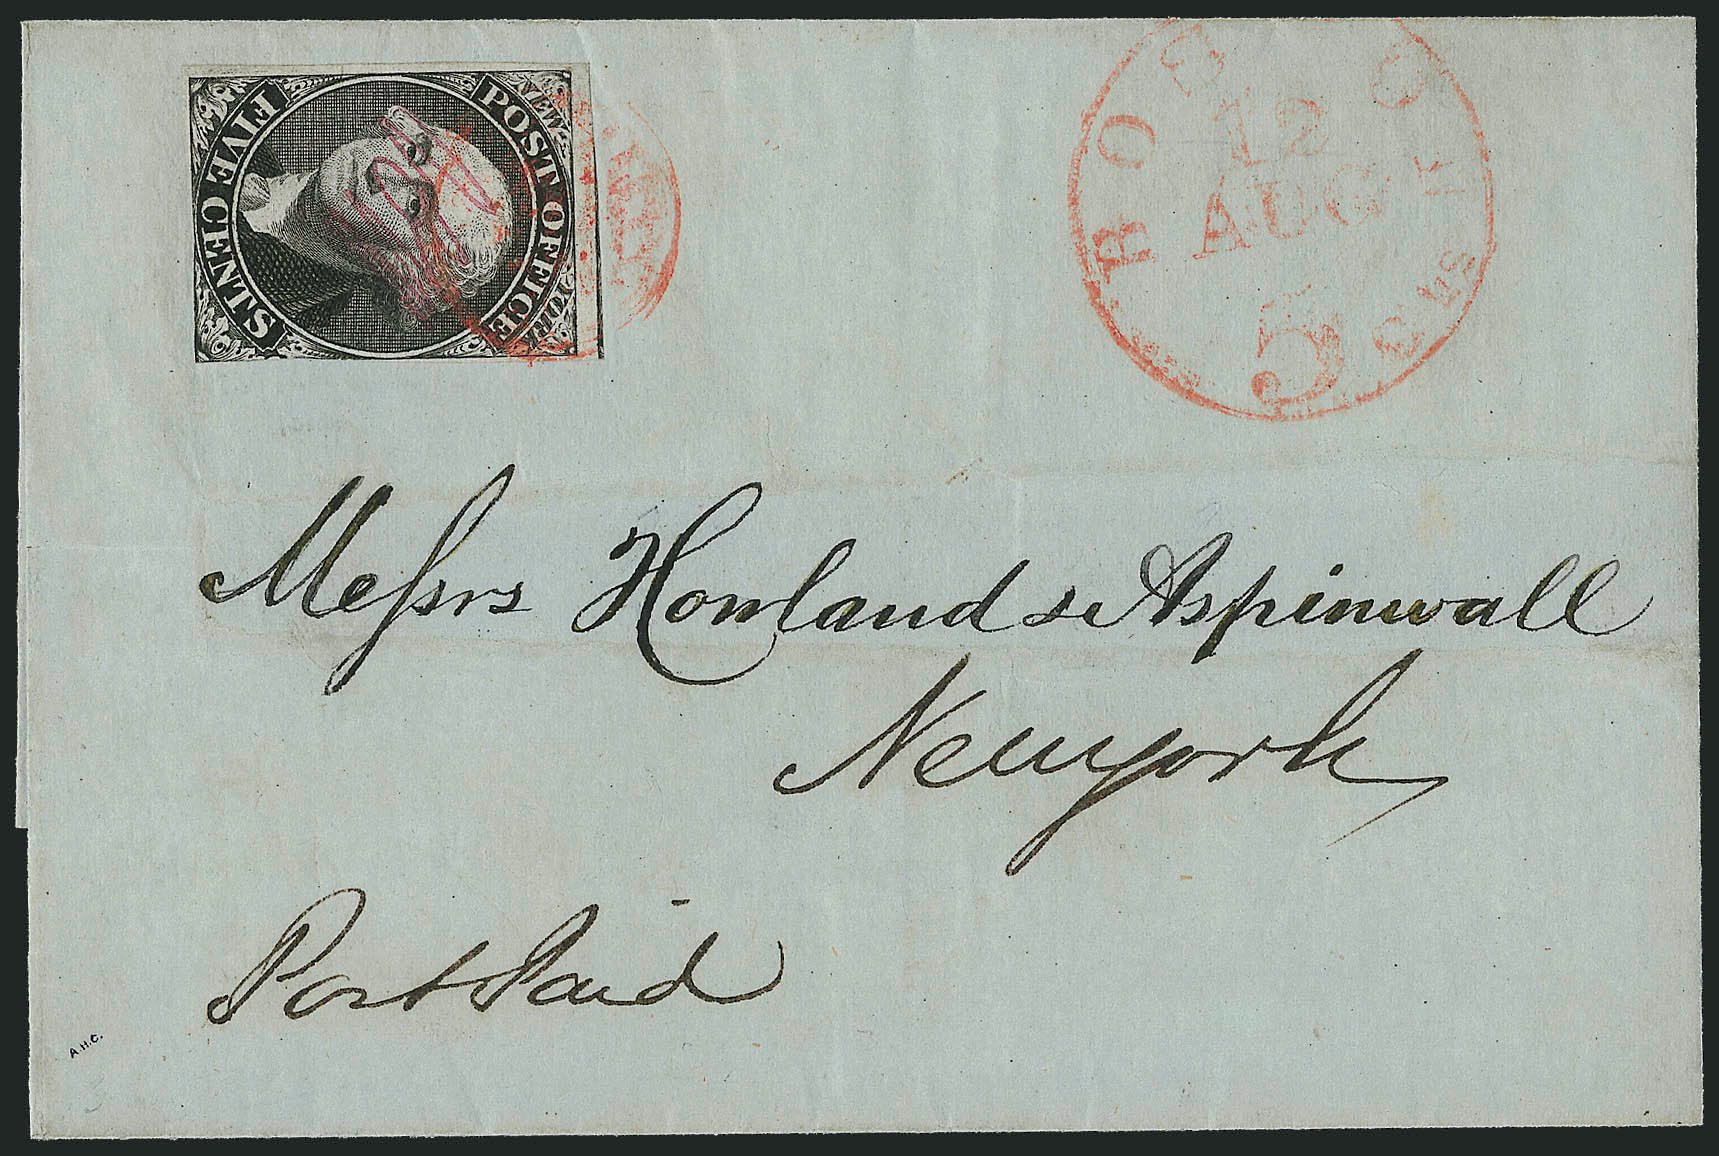 NEW YORK
POST OFFICE
FIVE CENTS
BOS
12
AUG
5 cts
Messrs Howland & Aspinwall
New york
Post Paid
A.H.C.